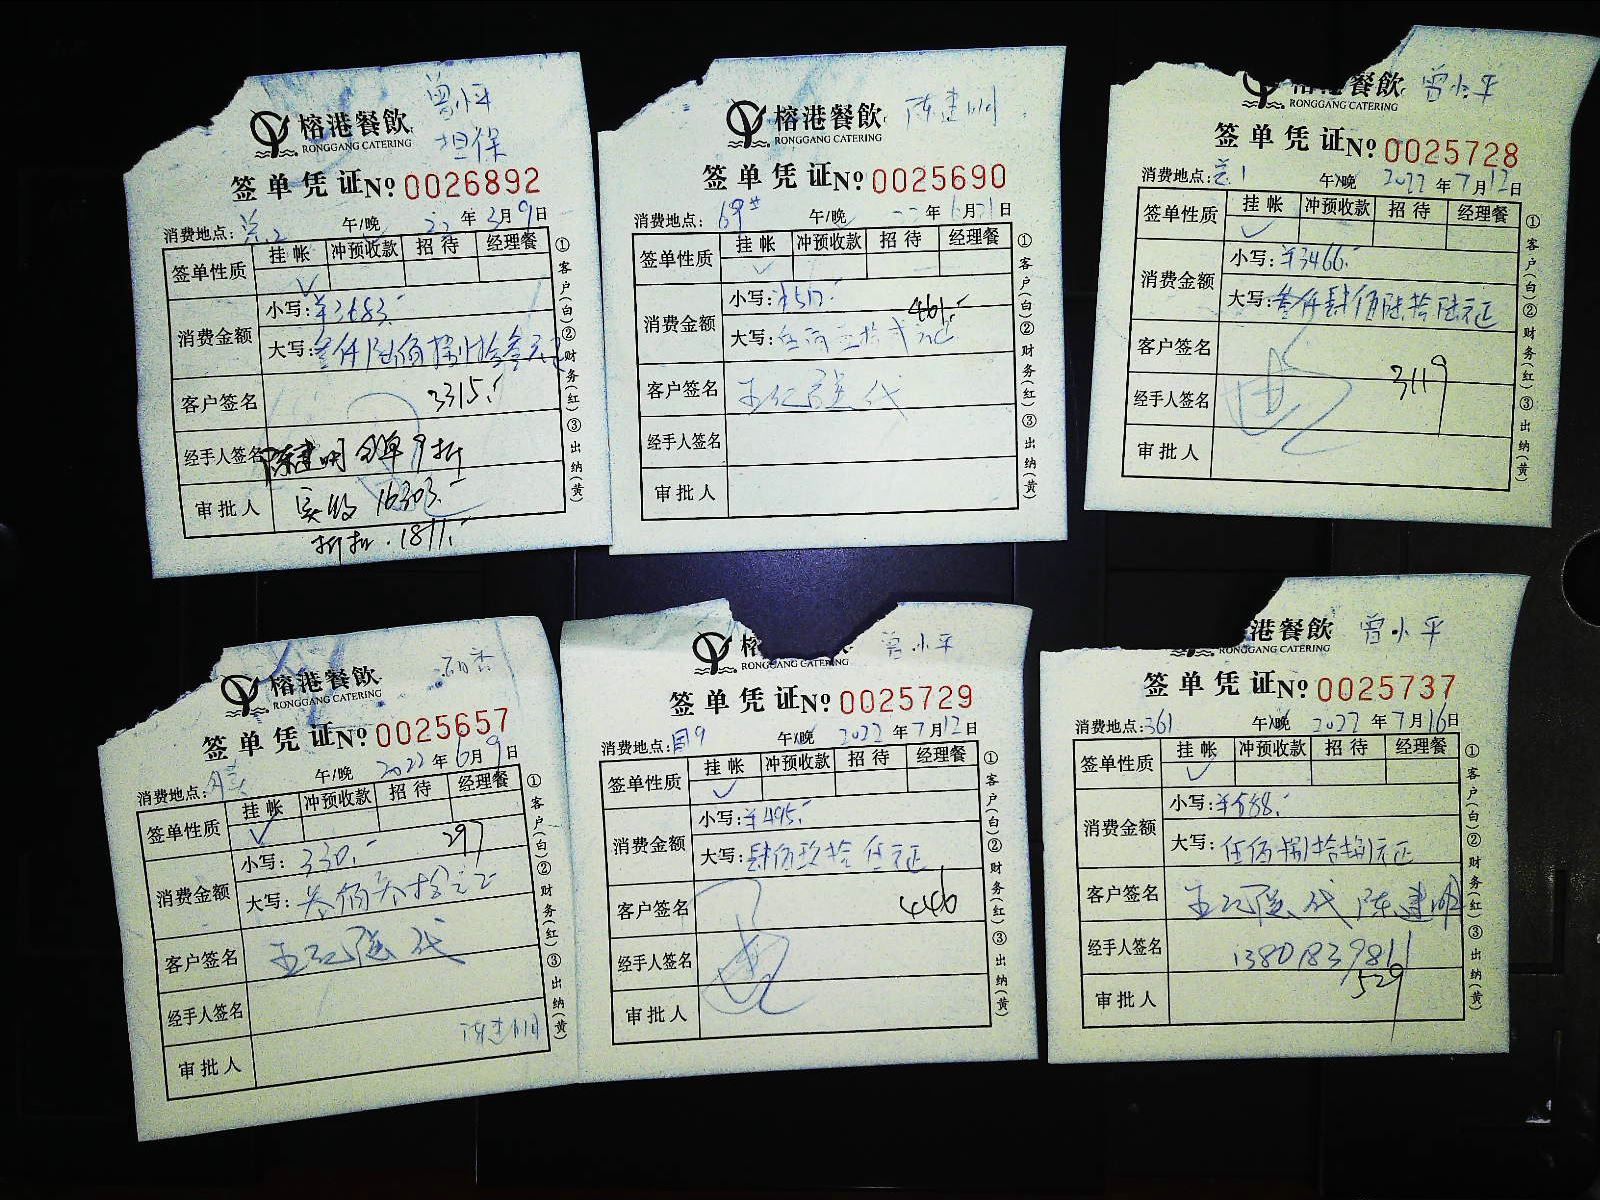 曾小平
担保
榕港餐飲
RONGGANG CATERING
签单凭证 № 0026892
消费地点: 午/晚 22年3月9日
签单性质 挂帐 冲预收款 招待 经理餐
✓
消费金额 小写: ¥3683.-
大写: 叁仟陆佰捌拾叁元正
客户签名 3315.-
经手人签名 陈建明 全单9折
审批人 实收 16303.-
折扣. 1811.-
①客户(白)②财务(红)③出纳(黄)
陈建明
榕港餐飲
RONGGANG CATERING
签单凭证 № 0025690
消费地点: 69# 午/晚 22年6月21日
签单性质 挂帐 冲预收款 招待 经理餐
✓
消费金额 小写: 461.-
大写:
客户签名 代
经手人签名
审批人
①客户(白)②财务(红)③出纳(黄)
曾小平
榕港餐飲
RONGGANG CATERING
签单凭证 № 0025728
消费地点: 午/晚 2022年7月12日
签单性质 挂帐 冲预收款 招待 经理餐
✓
消费金额 小写: ¥3466.-
大写: 叁仟肆佰陆拾陆元正
客户签名 3119
经手人签名
审批人
①客户(白)②财务(红)③出纳(黄)
榕港餐飲
RONGGANG CATERING
签单凭证 № 0025657
消费地点: 午/晚 2022年6月9日
签单性质 挂帐 冲预收款 招待 经理餐
✓
消费金额 小写: 330.- 297
大写: 叁佰叁拾元正
客户签名 代
经手人签名
陈建明
审批人
①客户(白)②财务(红)③出纳(黄)
曾小平
榕
RONGGANG CATERING
签单凭证 № 0025729
消费地点: 午/晚 2022年7月12日
签单性质 挂帐 冲预收款 招待 经理餐
✓
消费金额 小写: ¥495.-
大写: 肆佰玖拾伍元正
客户签名 446
经手人签名
审批人
①客户(白)②财务(红)③出纳(黄)
曾小平
港餐飲
RONGGANG CATERING
签单凭证 № 0025737
消费地点: 361 午/晚 2022年7月16日
签单性质 挂帐 冲预收款 招待 经理餐
✓
消费金额 小写: ¥588.-
大写: 伍佰捌拾捌元正
客户签名 代 陈建明
经手人签名 13801839811
审批人 529
①客户(白)②财务(红)③出纳(黄)